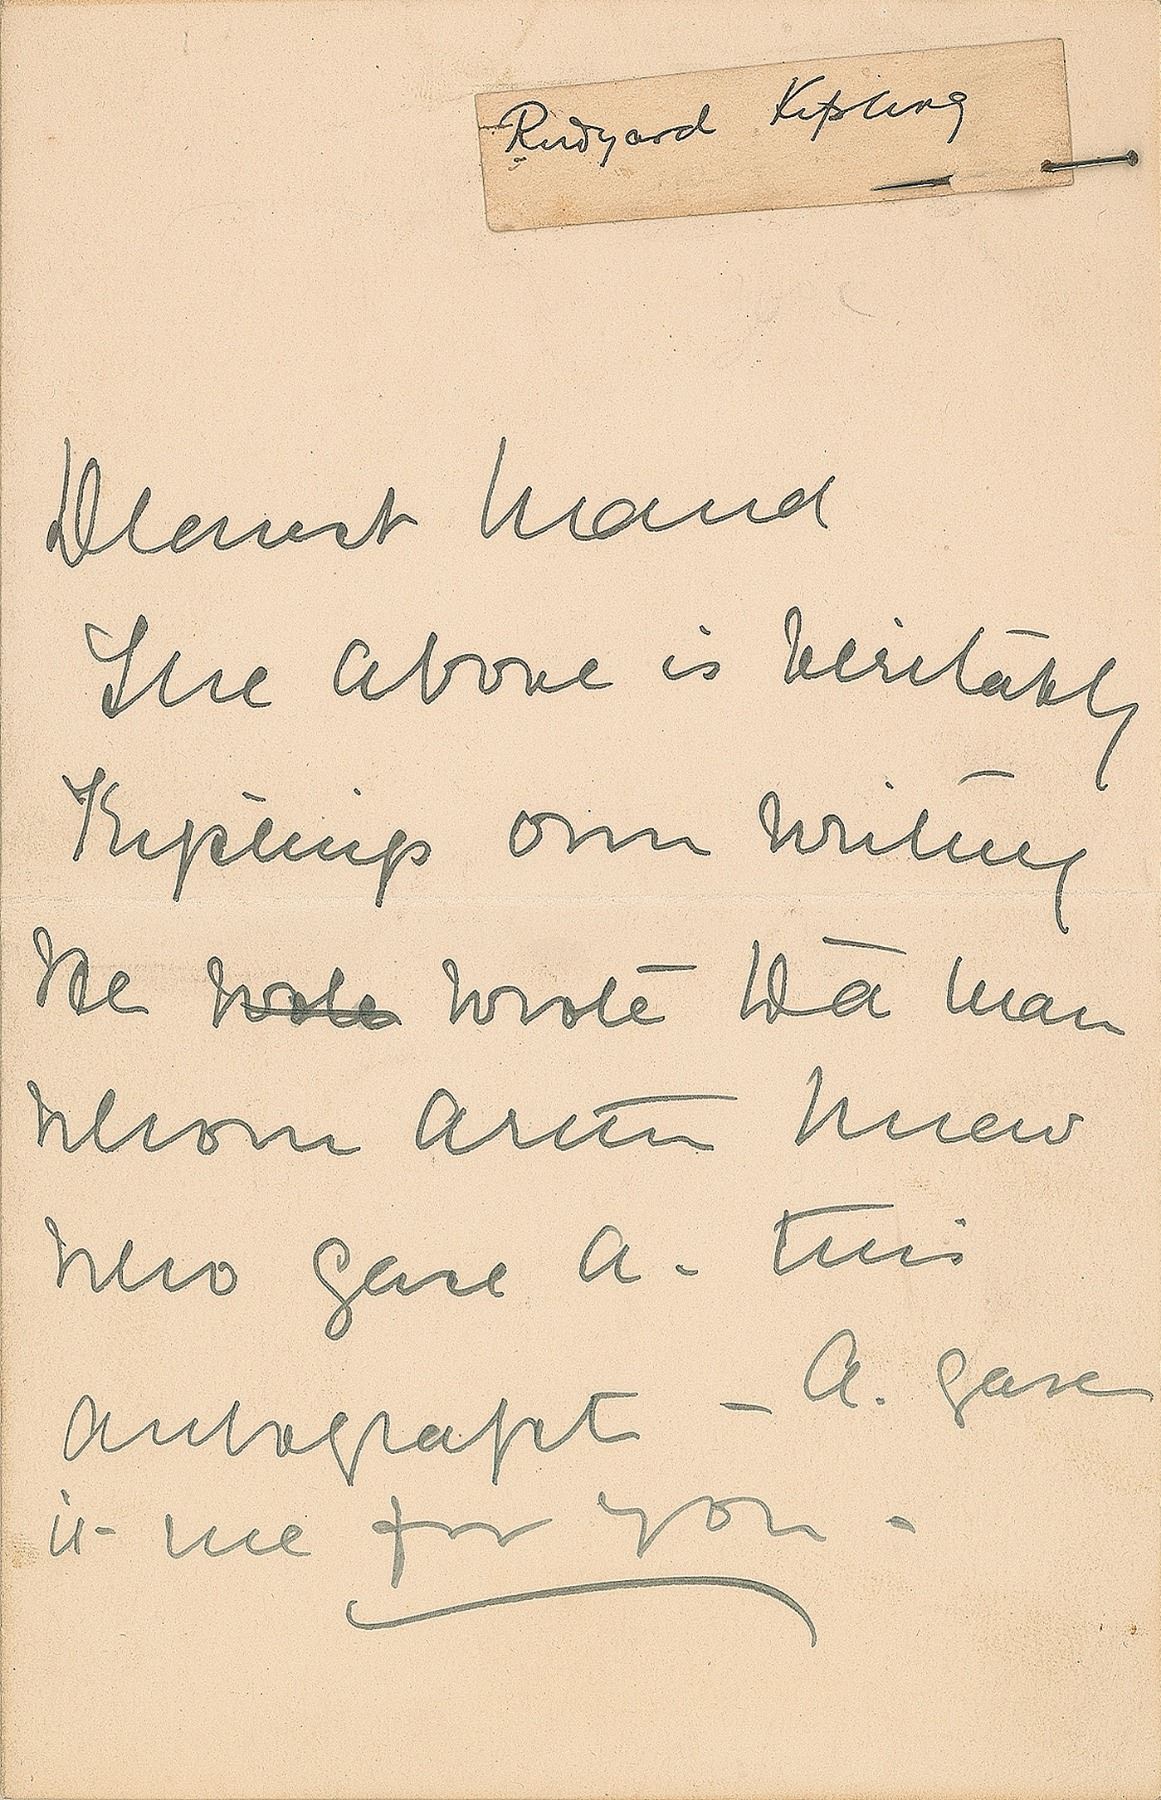 Rudyard Kipling
Dearest Maud
The above is veritably
Kiplings own writing
He wrote to a man
whom Austin knew
who gave A. this
autograph - A. gave
it me for you -